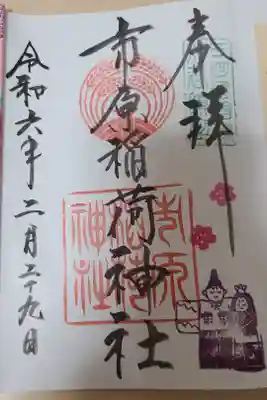 奉拝
市原稲荷神社
令和六年二月二十九日
市原稲荷神社